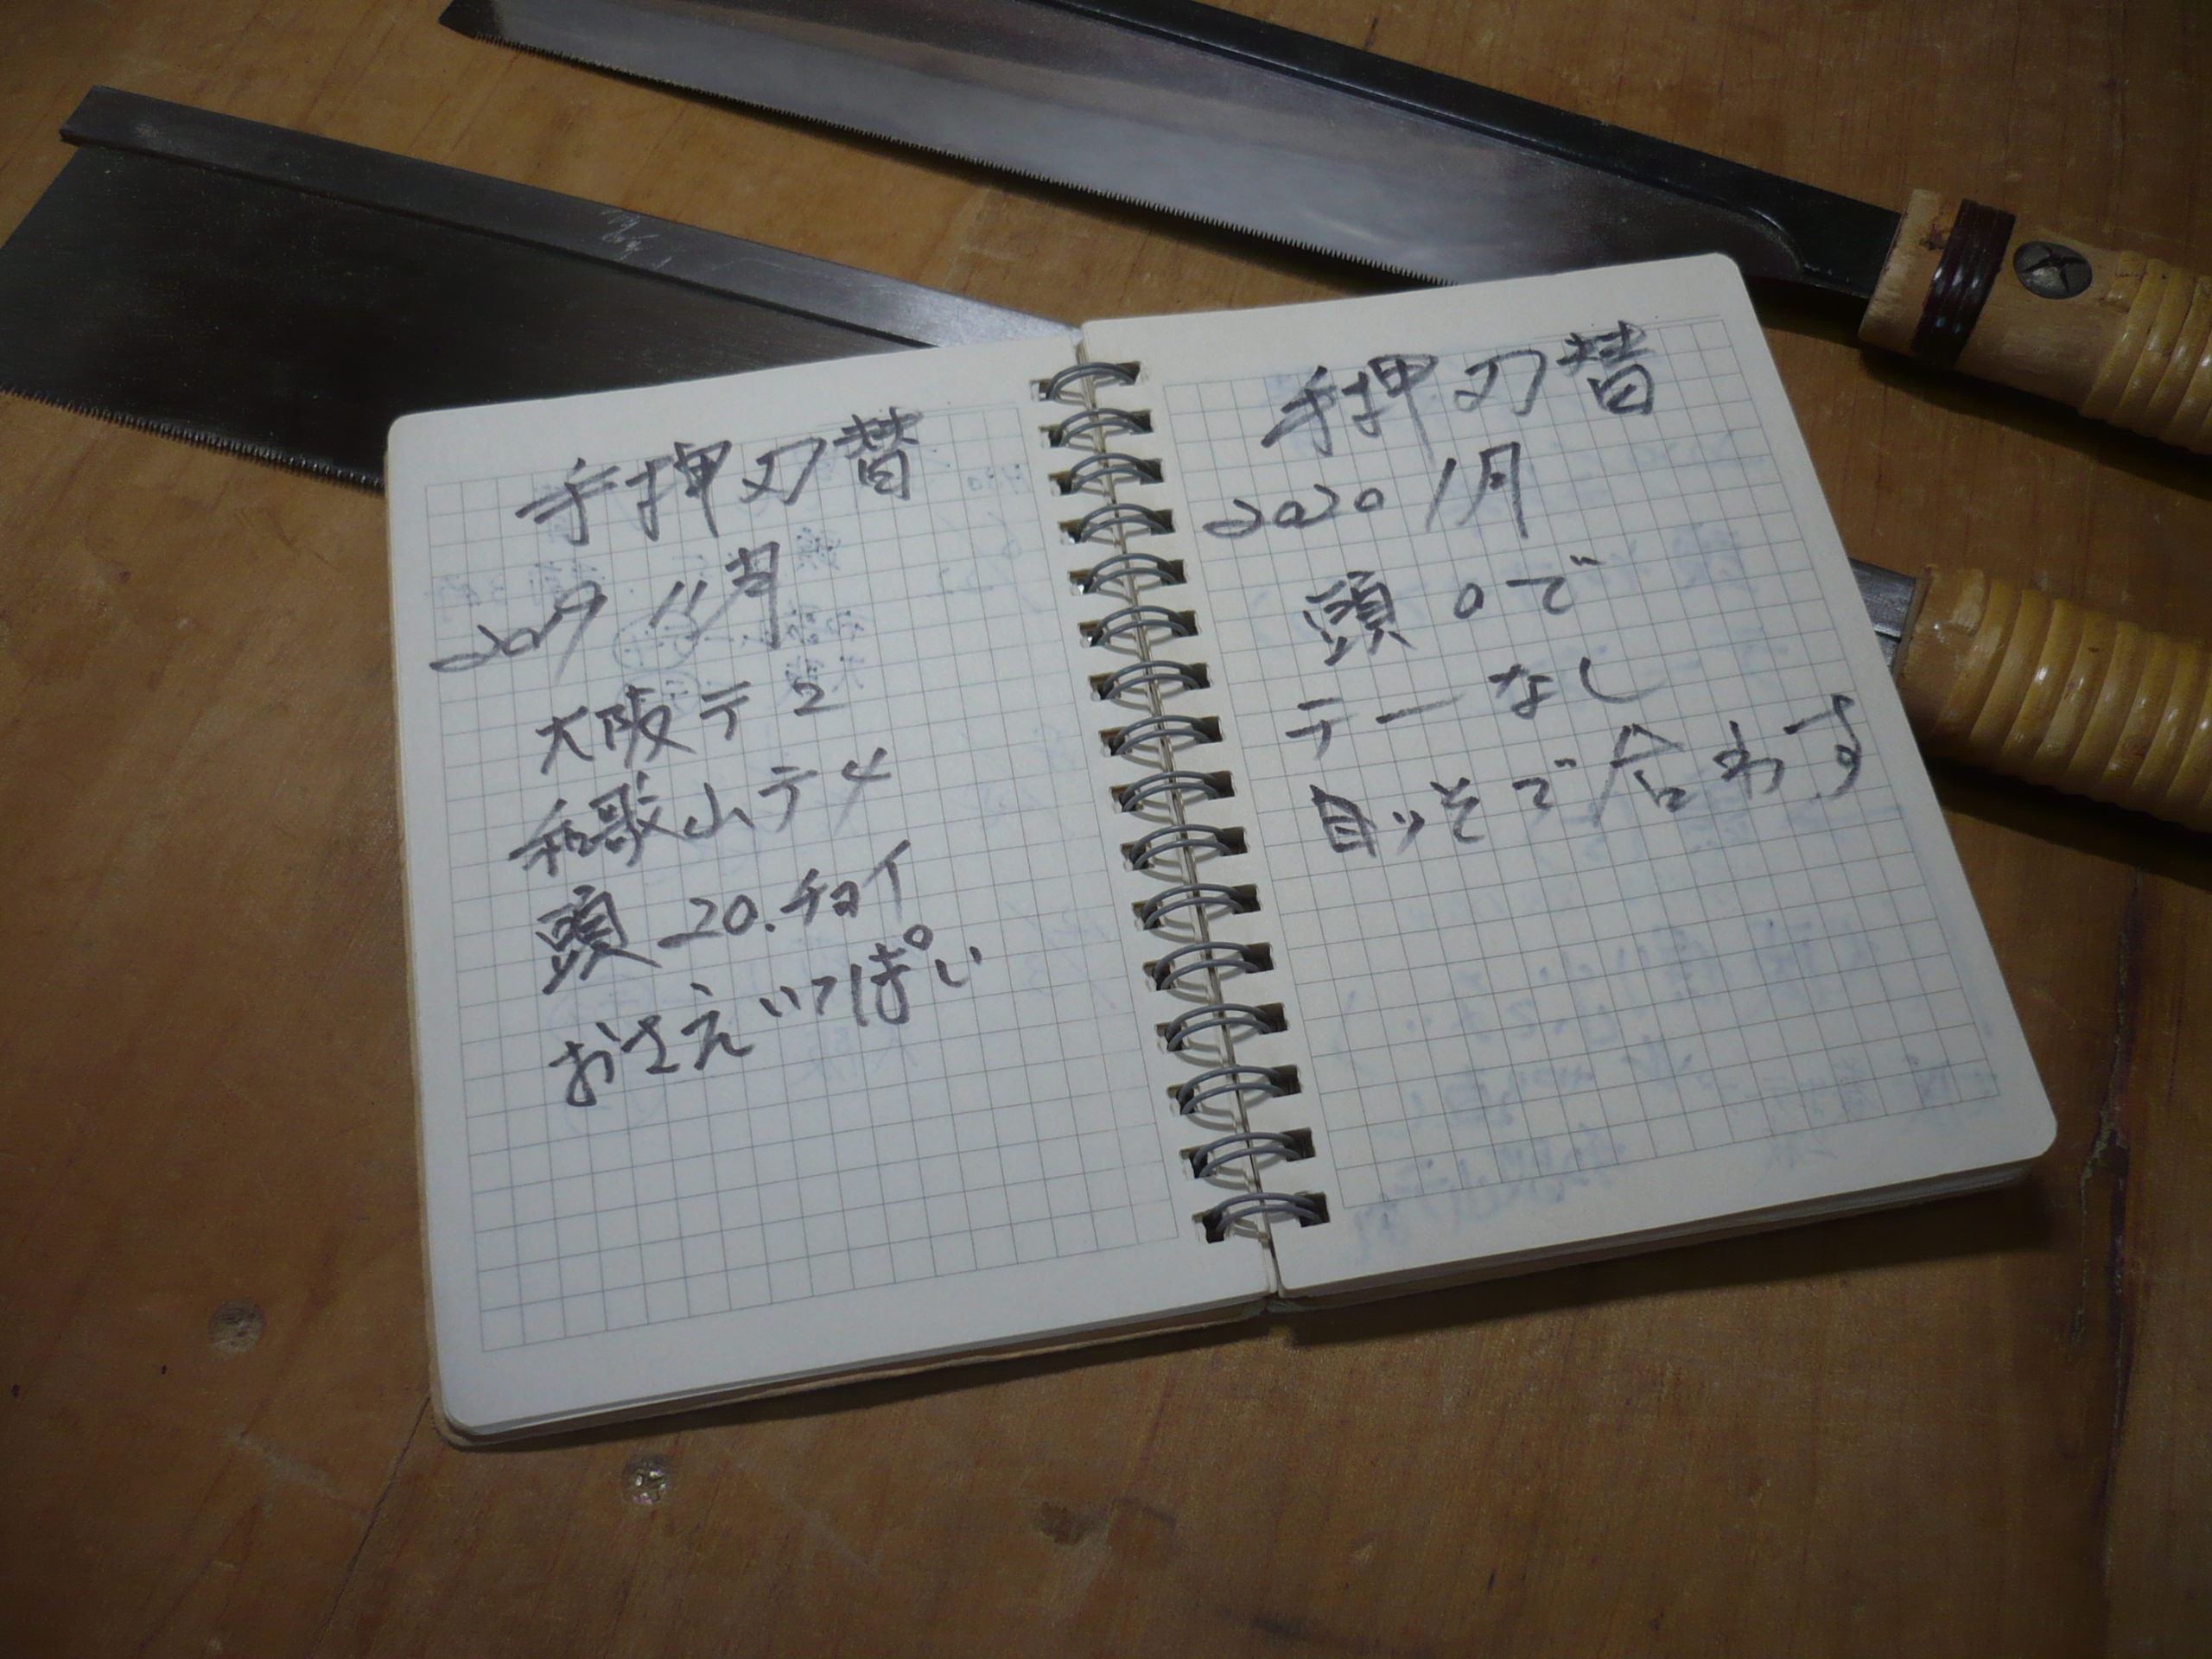 手押刃替
2019 11月
大阪テ2
和歌山テ4
頭 20.チョイ
おさえいっぱい
手押刃替
2020 1月
頭 0で
テーなし
目いそで合わす